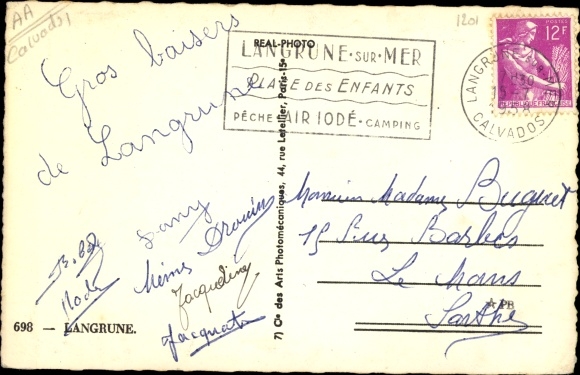 AA
Calvados
1201
Gros baisers
de Langrune
Dany
Drouin
Jacqueline
698 — LANGRUNE.
REAL-PHOTO
7) Cie des Arts Photomécaniques, 44, rue Letellier, Paris-15e
LANGRUNE·SUR·MER
PLAGE DES ENFANTS
PÊCHE AIR IODÉ - CAMPING
POSTES
12F
REPUBLIQUE FRANÇAISE
LANGRUNE
CALVADOS
Monsieur Madame Buquet
15 Rue Barbès
Le Mans
★ PB
Sarthe